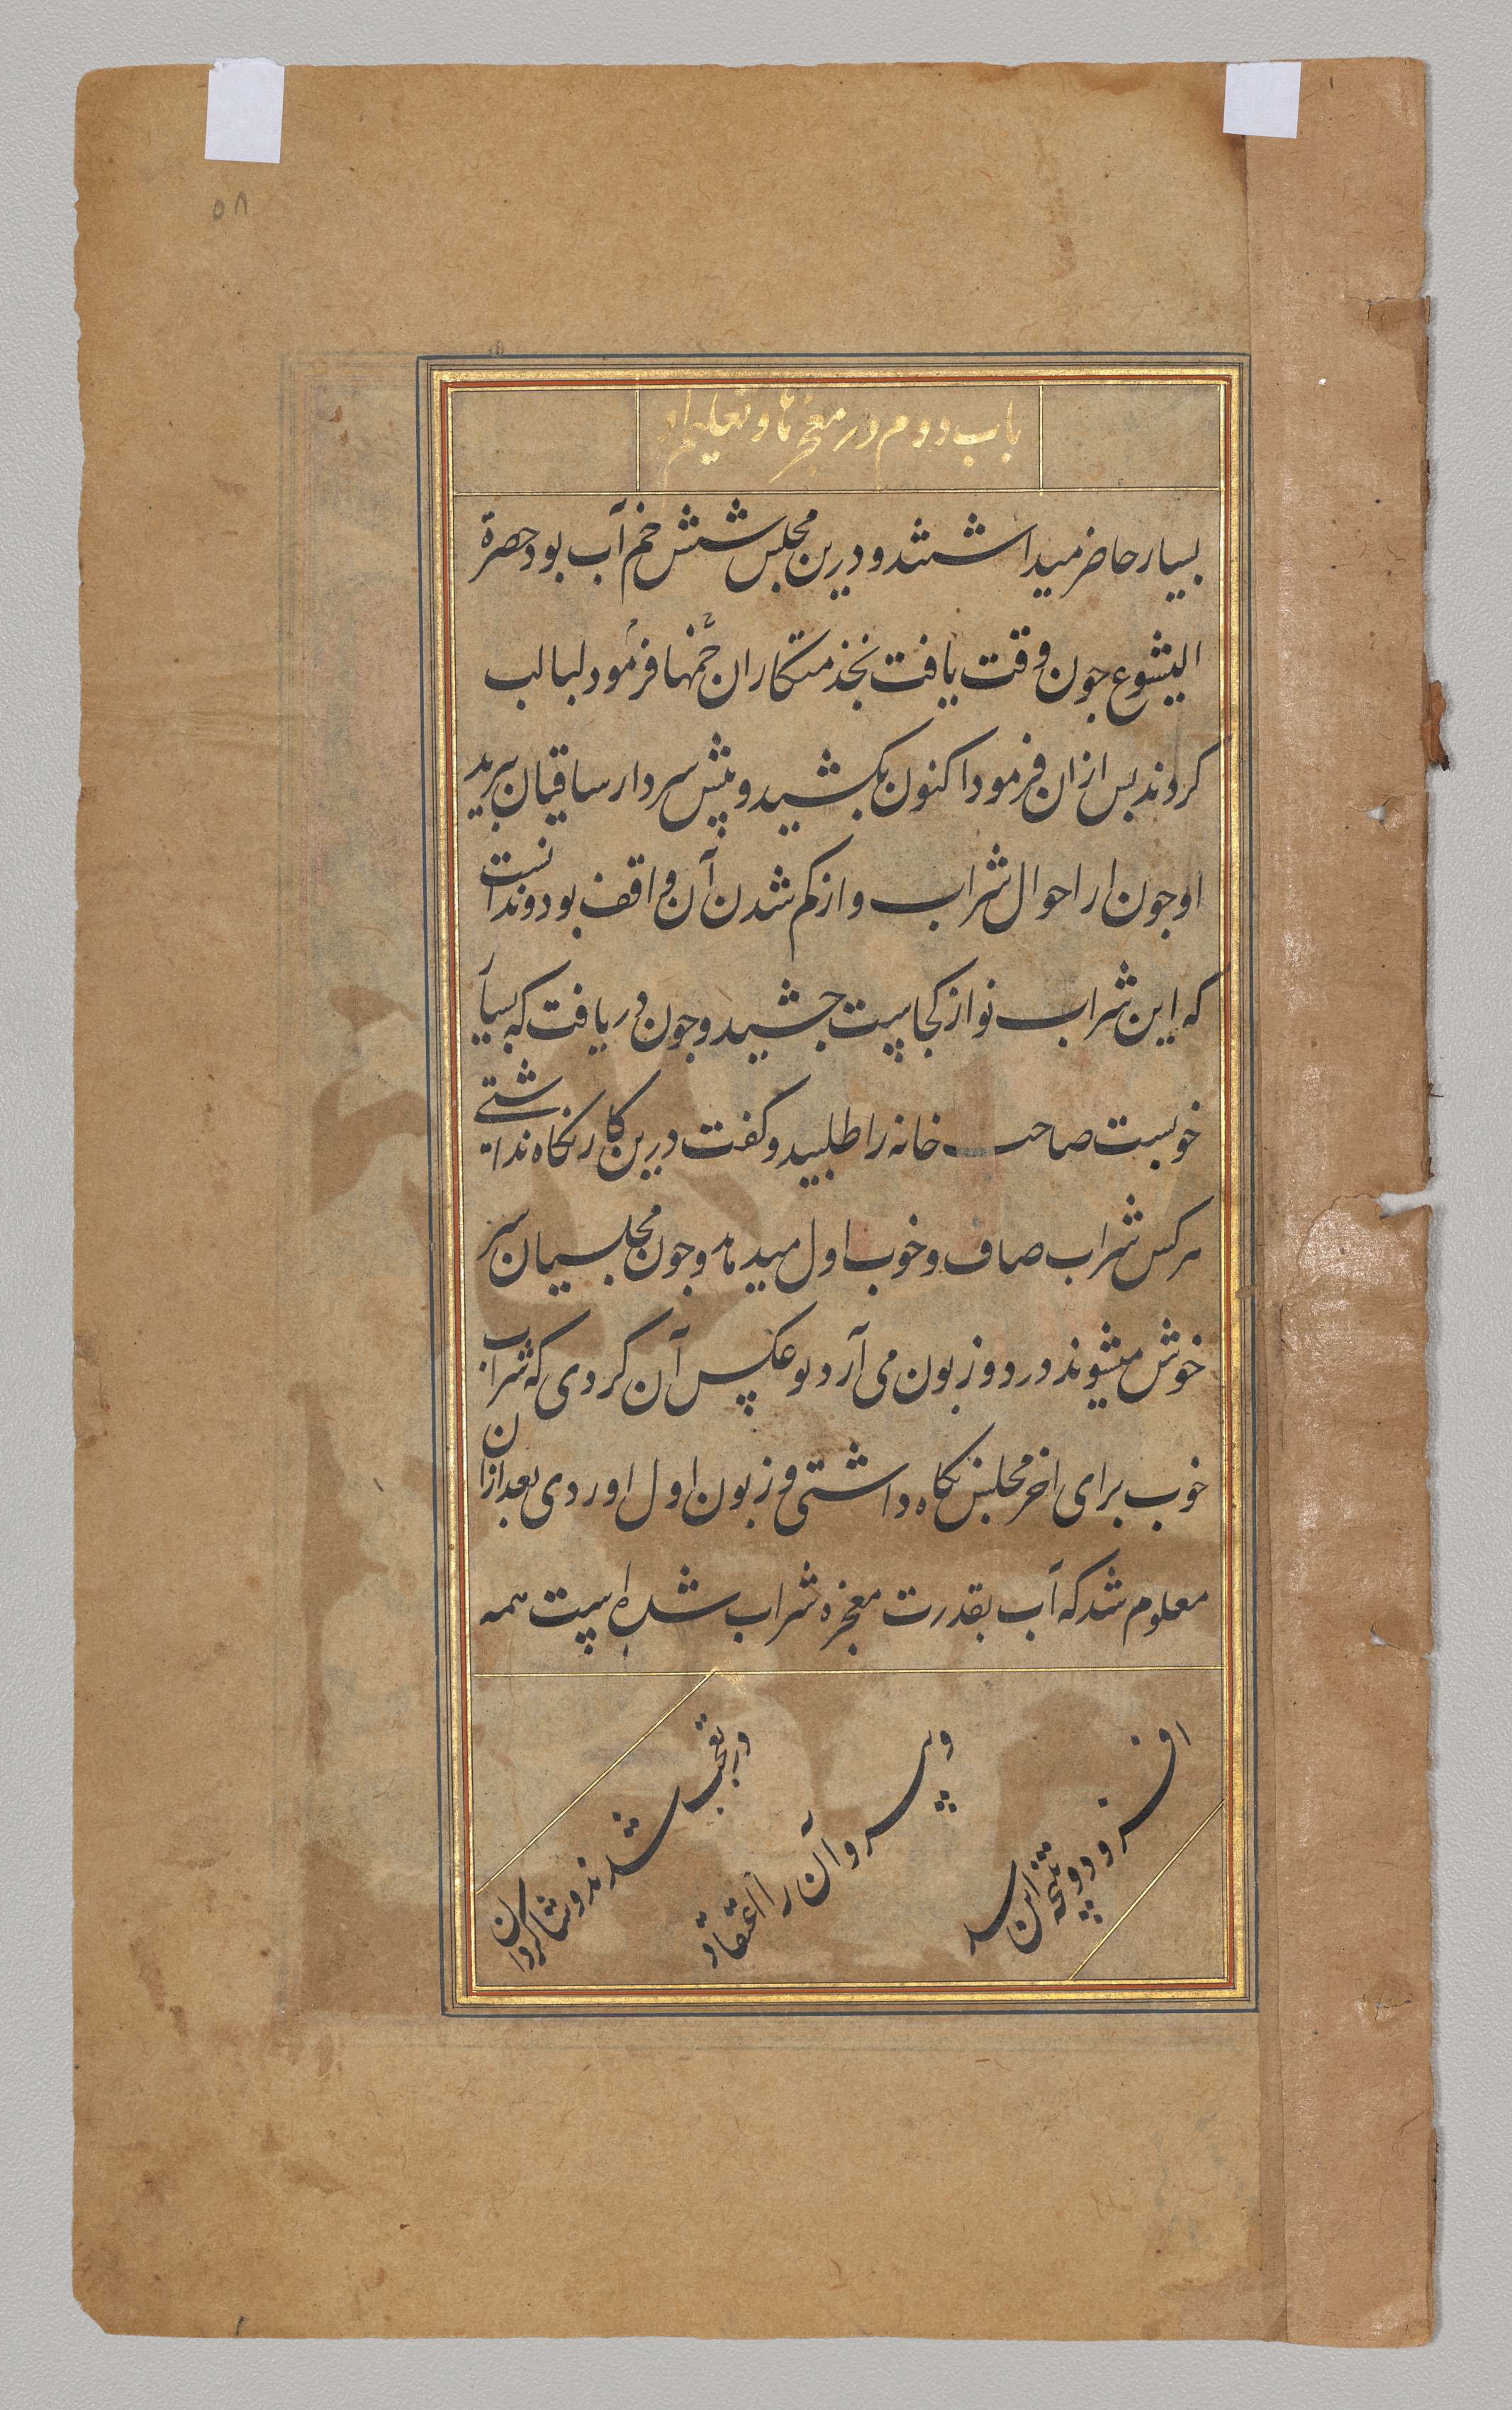 ۵۸
باب دوم در معجزها و تعلیم او
بسیار حاضر میداشتند و درین مجلس شش خم آب بود حضرة
الیشوع جون وقت یافت بخذمتکاران خمها فرمود لبالب
کروند بس ازان فرمود اکنون بکشید و پیش سردار ساقیان ببرید
او جون از احوال شراب و از کم شدن آن واقف بود و ندانست
که این شراب نو از کجاست جشید و جون دریافت که بسیار
خوبست صاحب خانه را طلبید و کفت درین کار نکاه نداشتی
هر کس شراب صاف و خوب اول میدهد و جون مجلسیان سر
خوش میشوند درد و زبون می آرد تو عکس آن کردی که شراب
خوب برای اخر مجلس نکاه داشتی و زبون اول اوردی بعد ازان
معلوم شد که آب بقدرت معجزه شراب شده است همه
در تعجب شدند و شاکردان
و پسروان را اعتقاد
افزود و